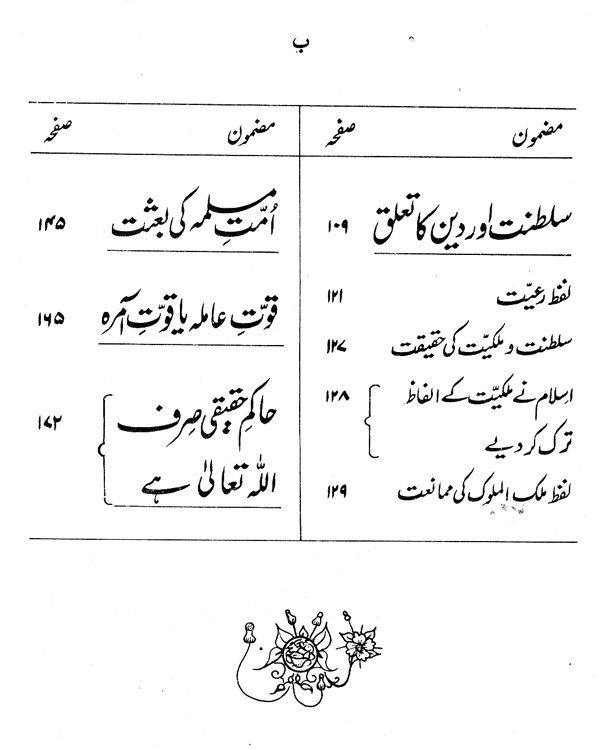 ب
مضمون صفحہ
سلطنت اور دین کا تعلق ۱۰۹
لفظ رعیّت ۱۲۱
سلطنت و ملکیّت کی حقیقت ۱۲۷
اسلام نے ملکیّت کے الفاظ ۱۲۸
ترک کر دیے
لفظ ملک الملوک کی ممانعت ۱۲۹
مضمون صفحہ
اُمّتِ مسلمہ کی بعثت ۱۴۵
قوّتِ عاملہ یا قوّتِ آمرہ ۱۶۵
حاکمِ حقیقی صِرف ۱۷۲
اللہ تعالیٰ ہے